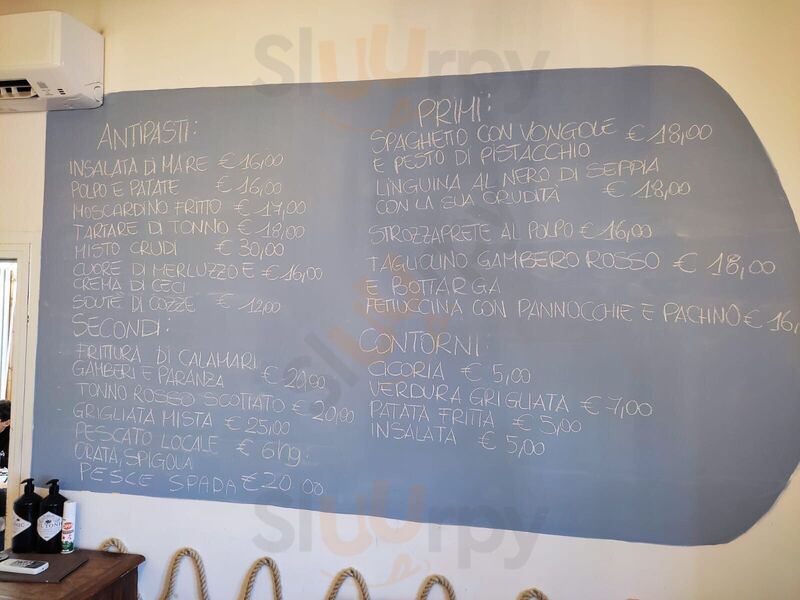 Sluurpy
ANTIPASTI:
INSALATA DI MARE €16,00
POLPO E PATATE €16,00
MOSCARDINO FRITTO €17,00
TARTARE DI TONNO €18,00
MISTO CRUDI €30,00
CUORE DI MERLUZZO E €16,00
CREMA DI CECI
SOUTÈ DI COZZE €12,00
SECONDI:
FRITTURA DI CALAMARI
GAMBERI E PARANZA €20,00
TONNO ROSSO SCOTTATO €20,00
GRIGLIATA MISTA €25,00
PESCATO LOCALE € 6hg.
ORATA, SPIGOLA
PESCE SPADA €20,00
PRIMI:
SPAGHETTO CON VONGOLE €18,00
E PESTO DI PISTACCHIO
LINGUINA AL NERO DI SEPPIA
CON LA SUA CRUDITÀ €18,00
STROZZAPRETE AL POLPO €16,00
TAGLIOLINO GAMBERO ROSSO €18,00
E BOTTARGA
FETTUCCINA CON PANNOCCHIE E PACHINO €16,
CONTORNI:
CICORIA €5,00
VERDURA GRIGLIATA €7,00
PATATA FRITTA €5,00
INSALATA €5,00
Sluurpy
Sluurpy